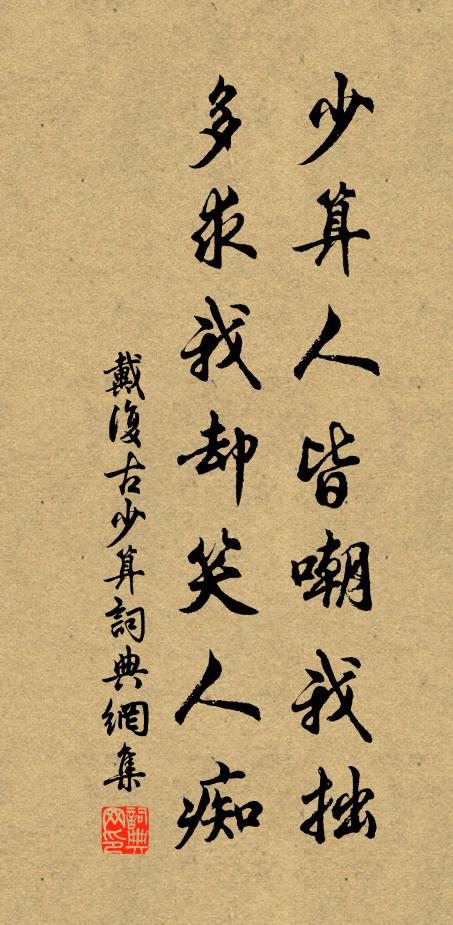 少算人皆嘲我拙
多求我却笑人痴
戴復古少算詞典網集
詞典網印